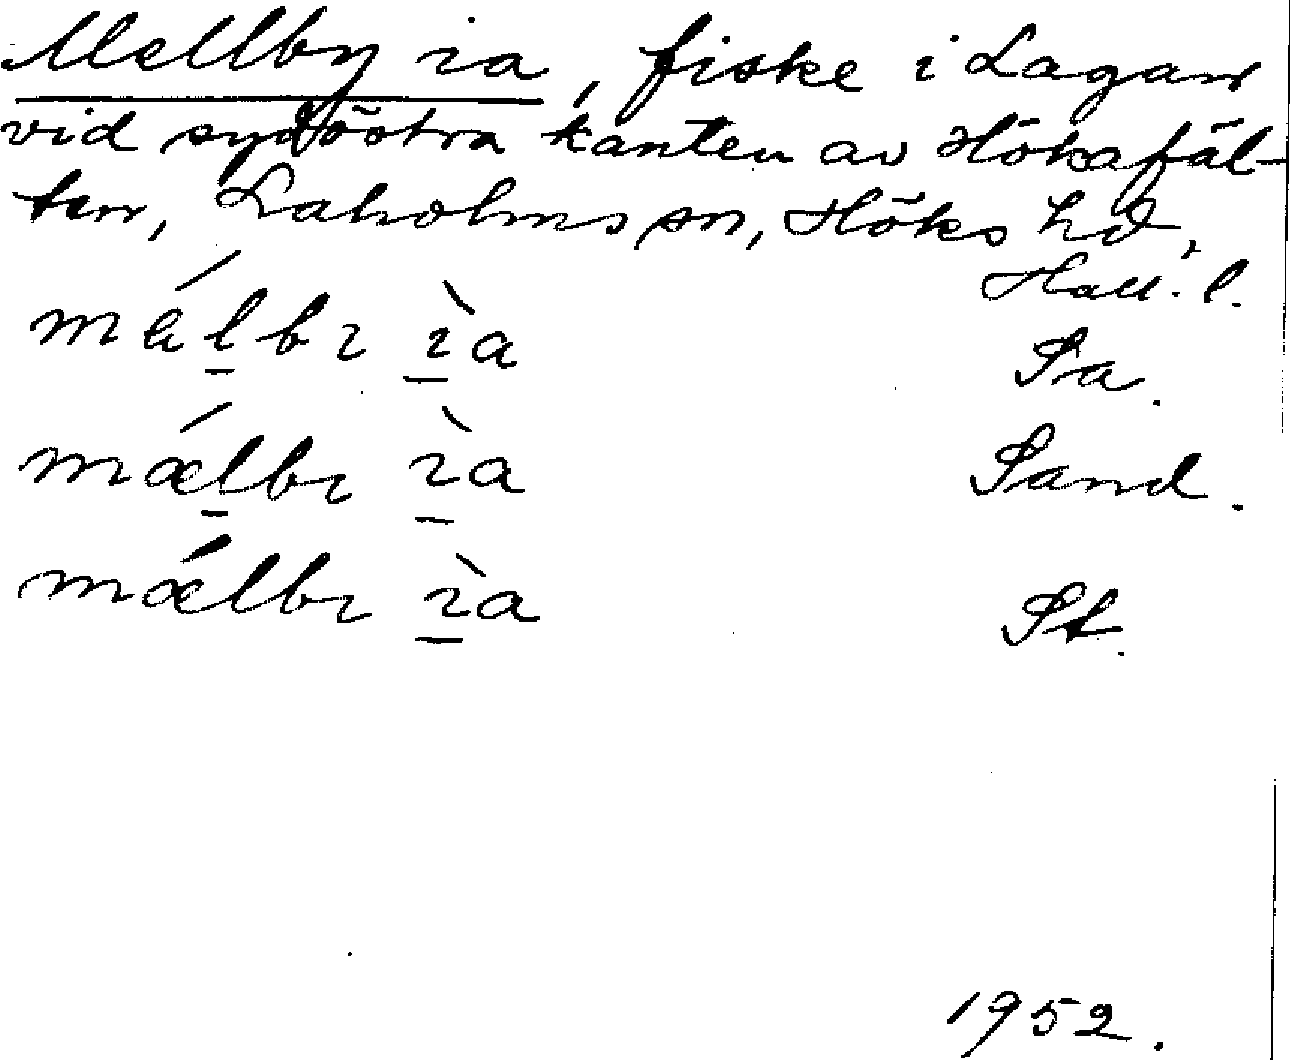 Mellby ia, fiske i Lagan
vid sydöstra kanten av Hökafäl-
ten, Laholms sn, Höks hd,
Hall. l.
málbı ı̀a Sa.
mǽlbı ı̀a Sand.
mǽlbı ı̀a St.
1952.